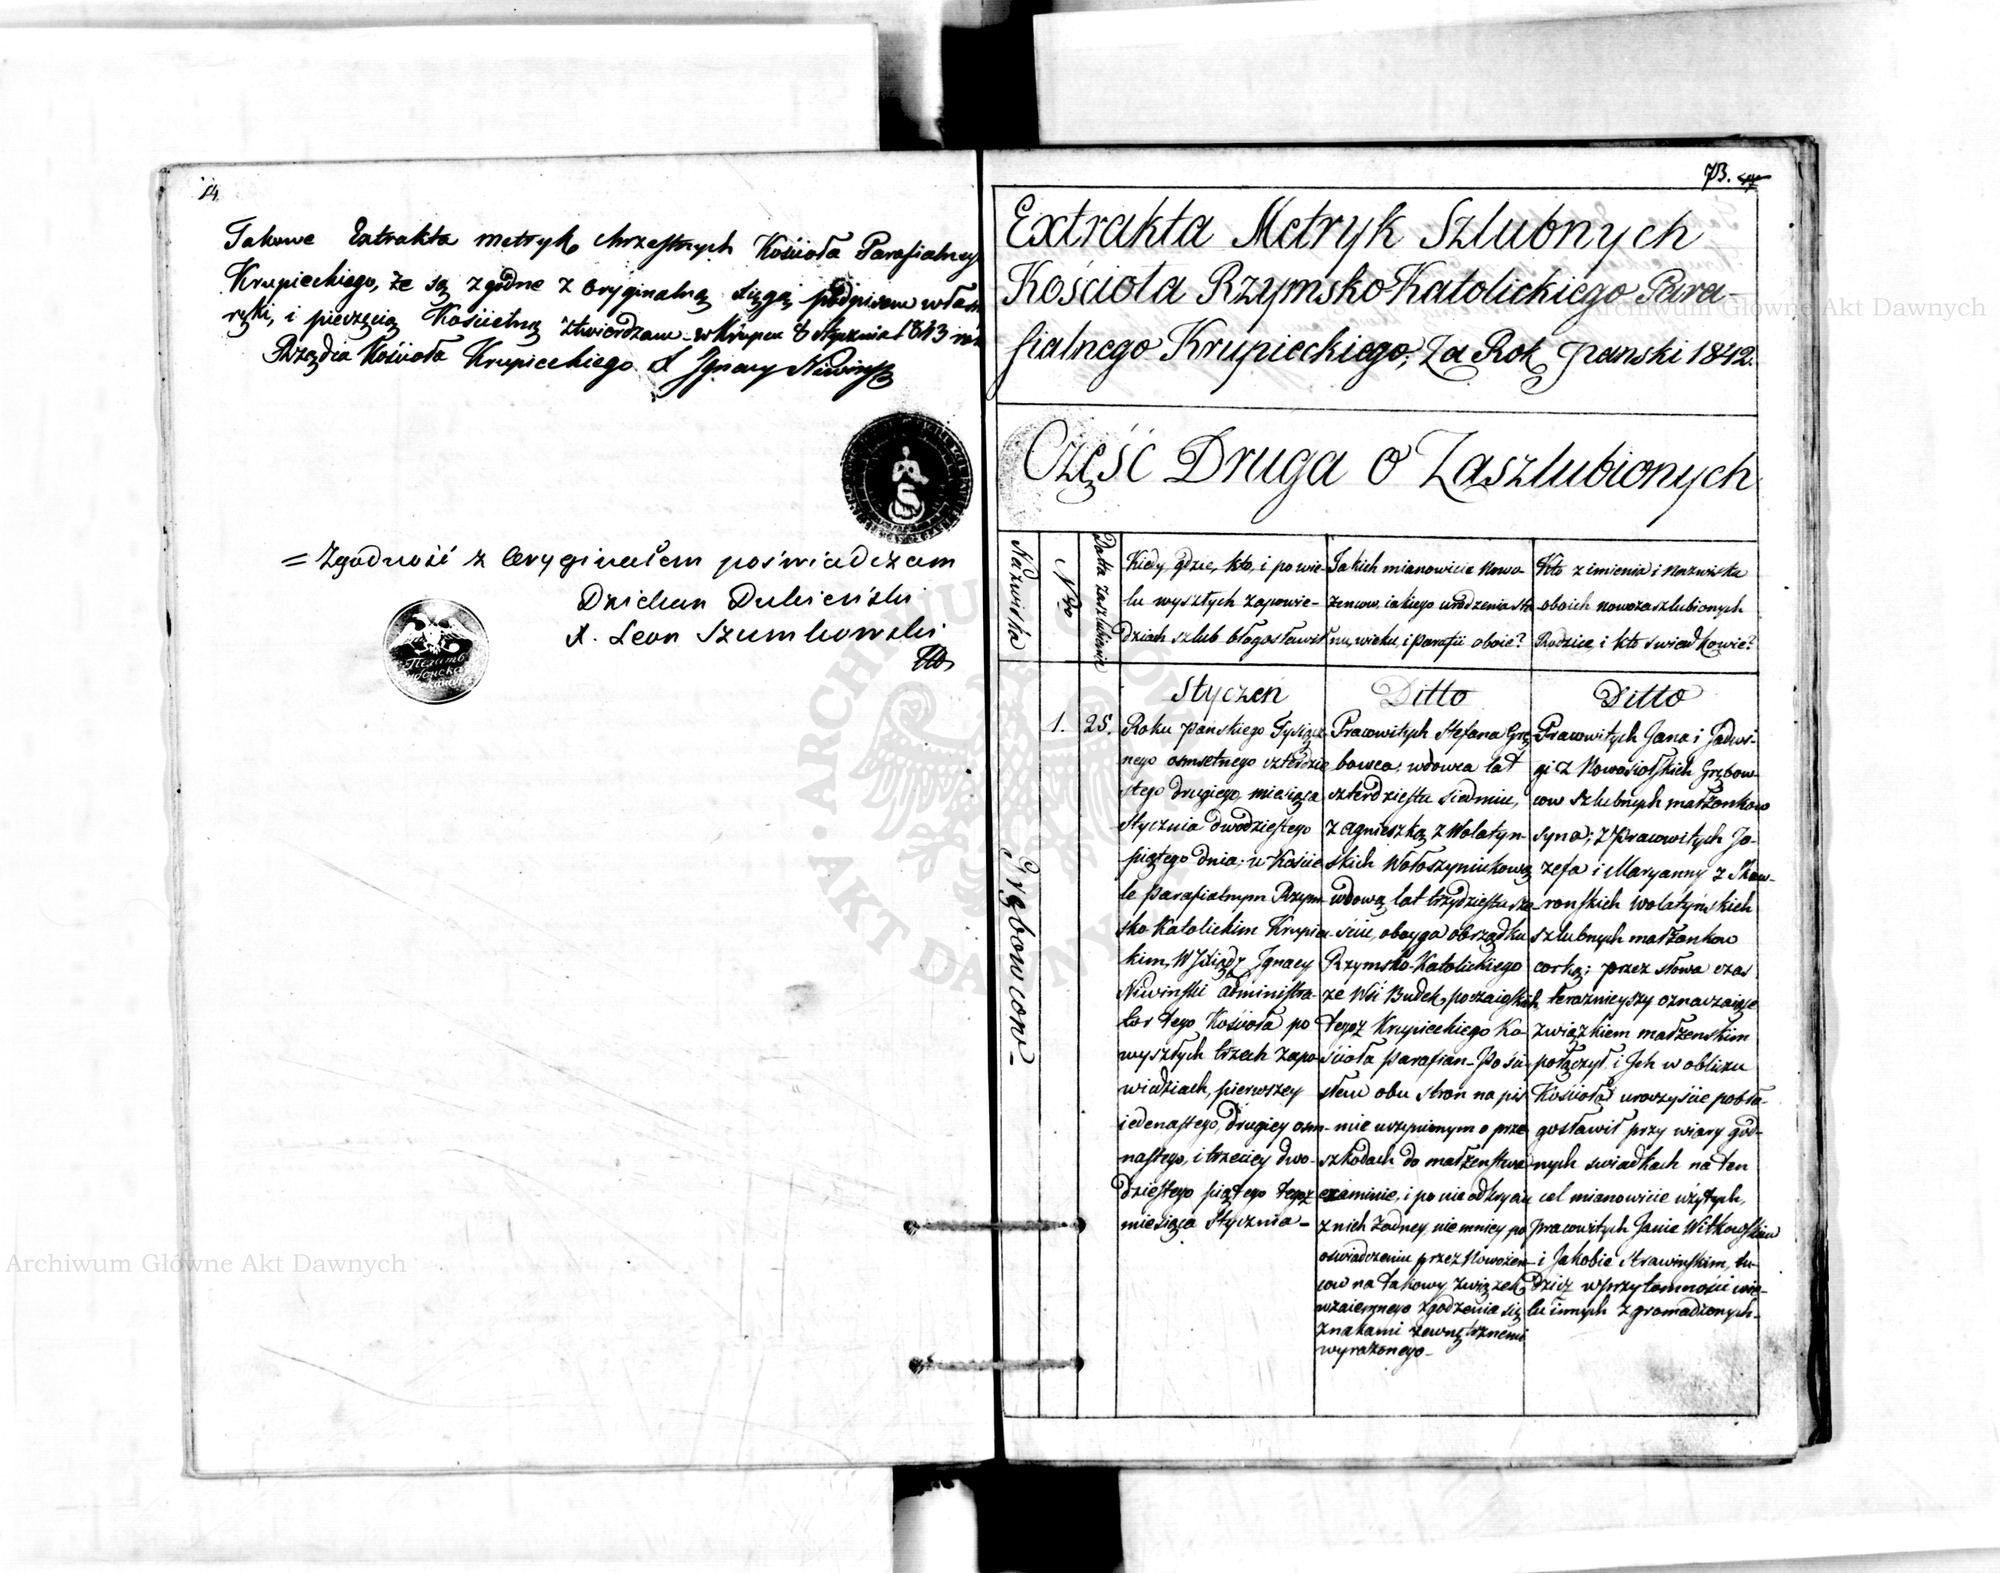 14.
Takowe Extrakta metryk chrzestnych Kościoła Parafialnego
Krupieckiego, że są zgodne z oryginalną xięgą, podpisem własn
ręki, i pieczęcią Kościelną ztwierdzam w Krupcu 8 Stycznia 1843 ro
Rządca Kościoła Krupieckiego X Ignacy Niwiński
= Zgodność z Oryginałem poświadczam
Dziekan Dubieński
X. Leon Szumkowski
Печать
73.
Extrakta Metryk Szlubnych
Kościoła Rzymsko-Katolickiego Para-
fialnego Krupieckiego, Za Rok Panski 1842.
Część Druga o Zaszlubionych
Nazwiska
Nro
Datta zaszlubienia
Kiedy, gdzie, kto, i po wie-
lu wyszłych zapowie-
dziach szlub błogosławił
Jakich mianowicie nowo-
żencow, iakiego urodzenia sta-
nu, wieku, i parafii oboie?
Kto z imienia i nazwiska
oboich nowozaszlubionych
Rodzice, i kto swiadkowie?
Grębowcow
1.
25.
Styczeń
Roku Pańskiego Tysiącz-
nego osmsetnego czterdzie
stego drugiego, miesiąca
Stycznia dwodziestego
piątego dnia, w Koście
le Parafialnym Rzym-
sko-Katolickim Krupie-
kim, W JXiądz Ignacy
Niwiński Administra-
tor tego Kościoła po
wyszłych trzech zapo
wiedziach, pierwszey
iedenastego, drugiey osm-
nastego, i trzeciey dwo-
dziestego piątego tegoż
miesiąca Stycznia-
Ditto
Pracowitych Stefana Grę
bowca, wdowca lat
czterdziestu siedmiu,
z Agnieszką z Wolatyn-
skich Wołoszyniukową
wdową lat trzydziestu sze-
ściu, oboyga obrządku
Rzymsko-Katolickiego
ze Wsi Budek
tegoż Krupieckiego Ko
ścioła Parafian- Po ści
słem obu stron na piś
mie uczynionym o prze
szkodach do małżenstwa
examinie, i po nie odkryciu
z nich żadney, nie mniey po
oświadczeniu przez Nowożen-
cow na takowy związek
wzaiemnego zgodzenia się
znakami zewnętrznemi
wyrażonego-
Ditto
Pracowitych Jana i Jadwi-
gi z Nowosiołskich Grębow-
cow szlubnych małżonkow
syna; z Pracowitych Jo-
zefa i Maryanny z Skaw-
ronskich Wolatyńskich
szlubnych małżonkow
corką; przez słowa czas
teraznieyszy oznaczaiące
związkiem małżenskim
połączył, i Ich w obliczu
Kościoła uroczyście pobło-
gosławił przy wiary god-
nych swiadkach na ten
cel mianowicie użytych,
pracowitych Janie Witkowskim
i Jakobie Strawinskim, tu-
dzież w przytomności wie-
lu innych zgromadzonych-
Archiwum Główne Akt Dawnych
Archiwum Główne Akt Dawnych
ARCHIWUM GŁÓWNE AKT DAWNYCH